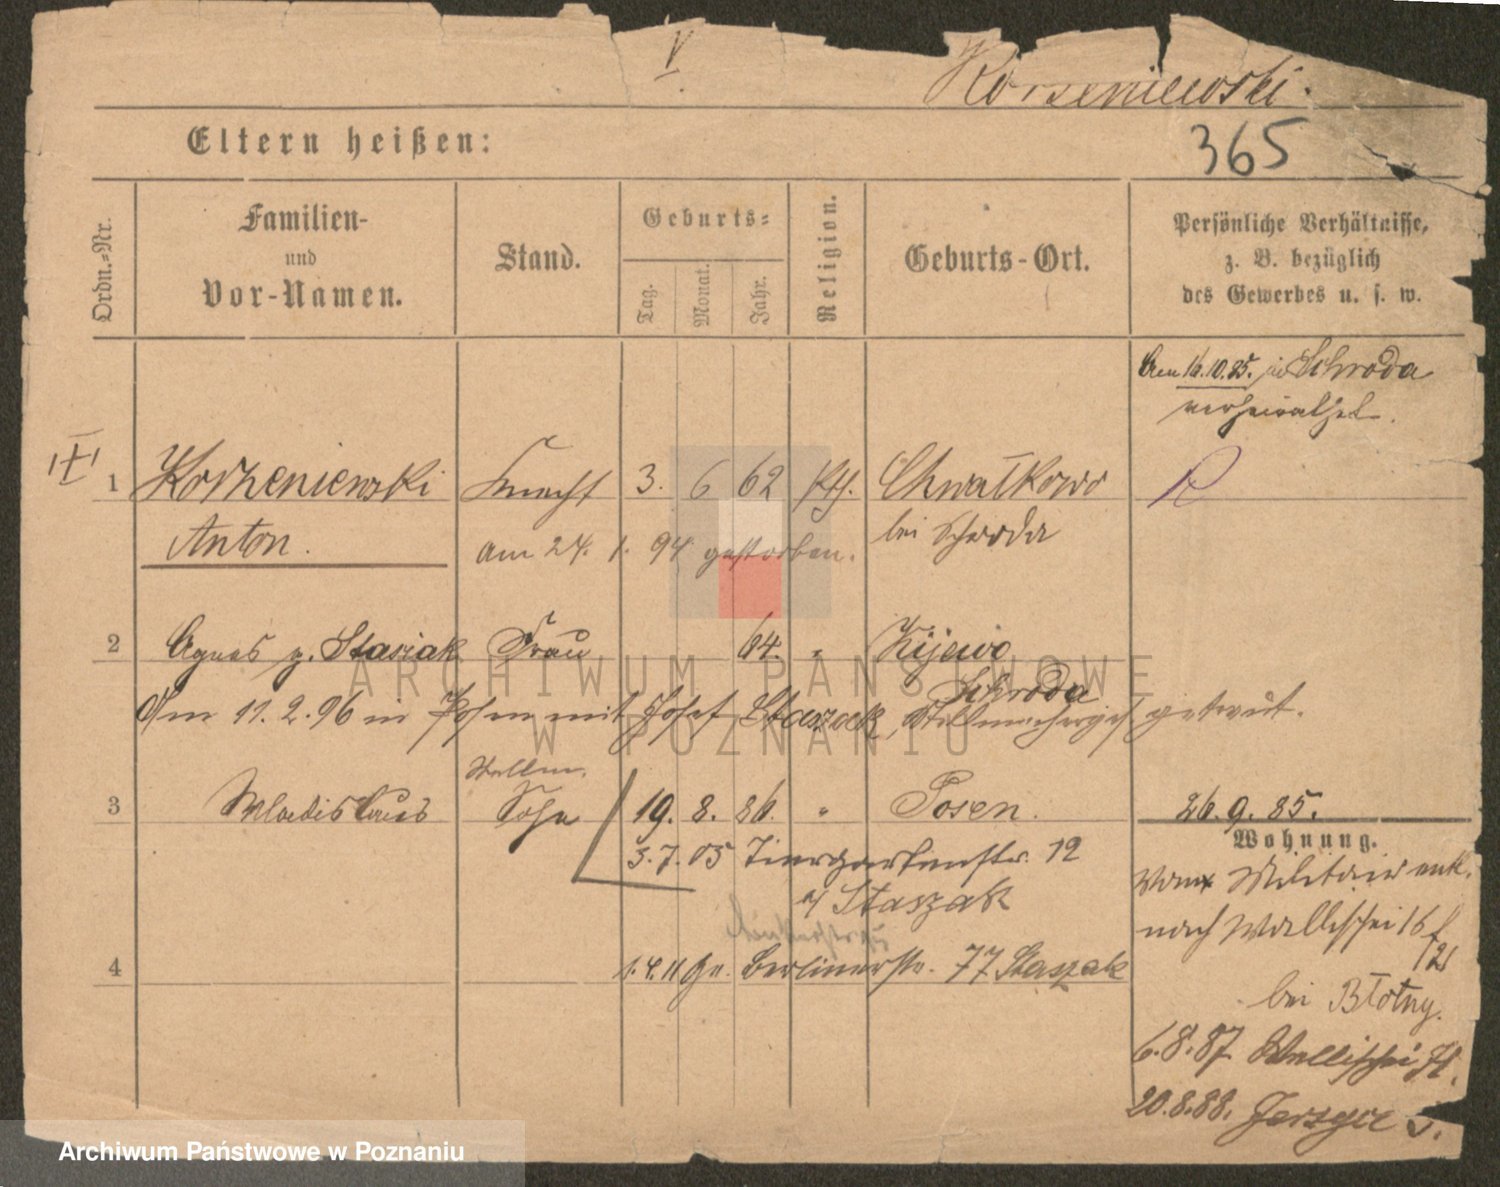 V
Korzeniewski.
Eltern heißen:
365
Ordn.-Nr.
Familien-
und
Vor-Namen.
Stand.
Geburts-
Tag.
Monat.
Jahr.
Religion.
Geburts-Ort.
Persönliche Verhältnisse,
z. B. bezüglich
des Gewerbes u. s. w.
Am 16.10.85. in Schroda
verheirathet.
1 Korzeniewski Knecht 3. 6 62 kth. Chwałkowo
Anton. am 24. 1. 94 gestorben. bei Schroda
2 Agnes g. Stasiak Frau 64. " Kijewo
Schroda
Am 11.2.96 in Posen mit Josef Staszak, Stellmacherges. getraut.
Stellm.
3 Wladislaus Sohn 19. 8. 86. " Posen. 26.9.85.
3.7.05 Tiergartenstr. 12
a/ Staszak
4 1.4.11 Gr. Berlinerstr. 77 Staszak
Wohnung.
Vom Militair entl.
nach Wallischei 16
bei Błotny.
6.8.87. Wallischei
20.8.88. Jerzyce
ARCHIWUM PAŃSTWOWE
W POZNANIU
Archiwum Państwowe w Poznaniu